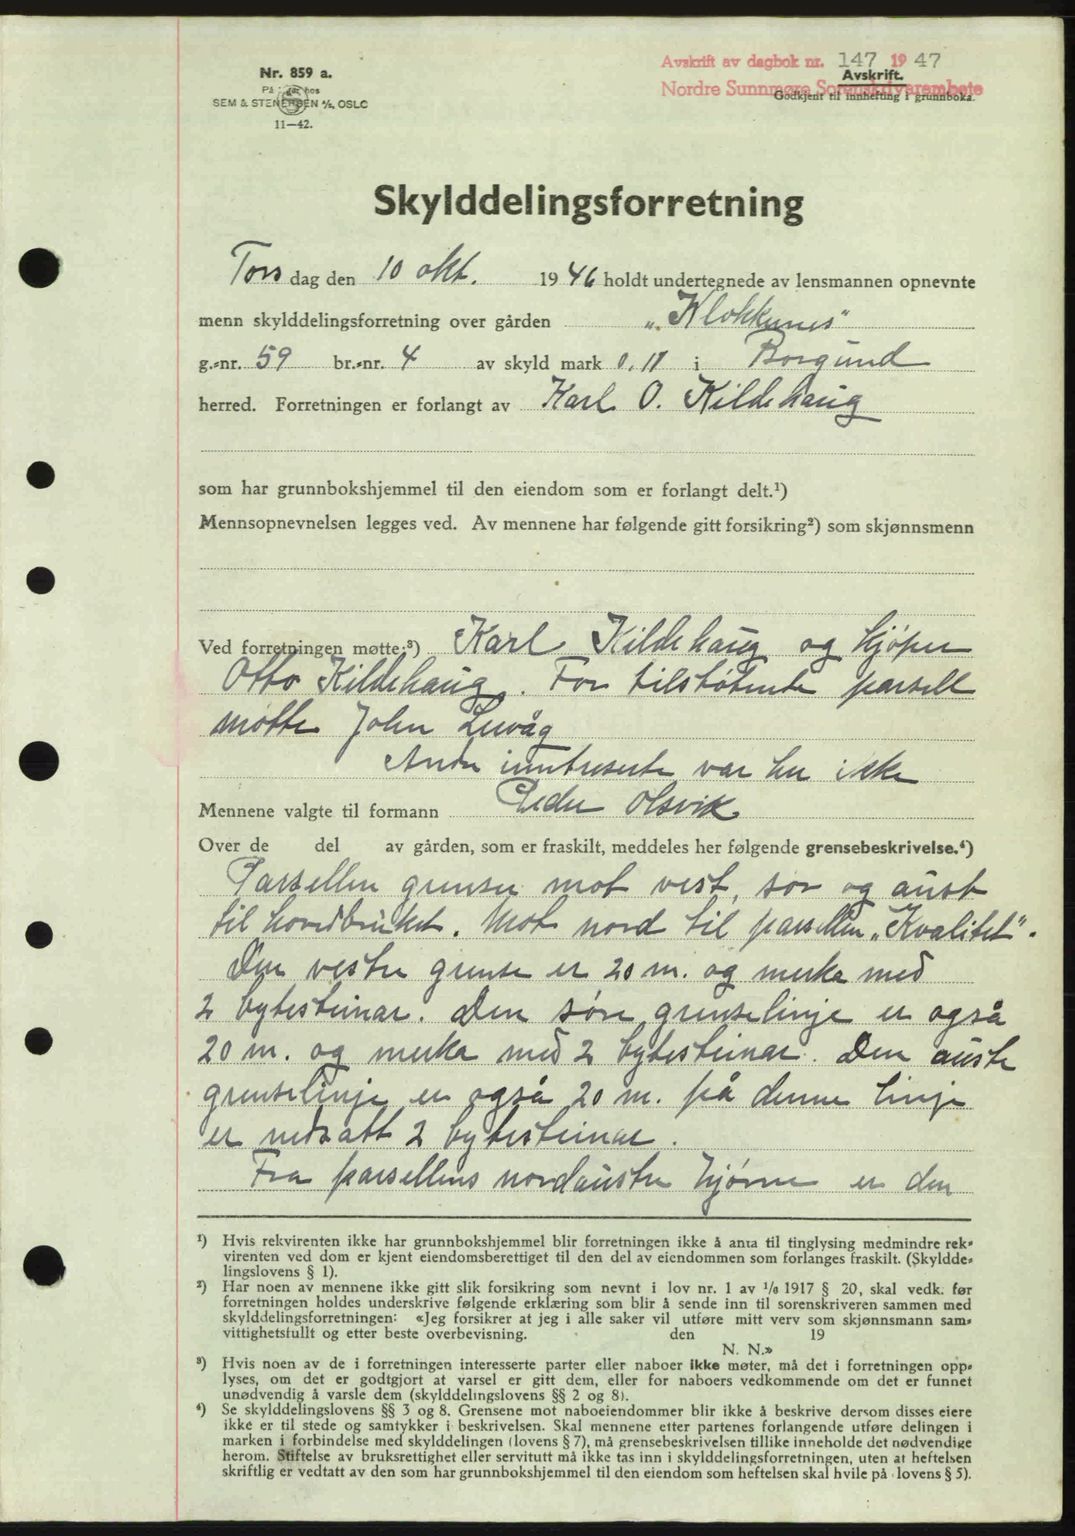 Avskrift av dagbok nr. 147 1947
Nr. 859 a.
Avskrift.
Nordre Sunnmøre Sorenskriverembete
Godkjent til innhefting i grunnboka.
På hos
SEM & STENERSEN A/S, OSLO
11—42.
Skylddelingsforretning
Torsdag den 10 okt. 1946 holdt undertegnede av lensmannen opnevnte
menn skylddelingsforretning over gården „Klokkernes“
g.-nr. 59 br.-nr. 4 av skyld mark 0,11 i Borgund
herred. Forretningen er forlangt av Karl O. Kildehaug
som har grunnbokshjemmel til den eiendom som er forlangt delt.¹)
Mennsopnevnelsen legges ved. Av mennene har følgende gitt forsikring²) som skjønnsmenn
Ved forretningen møtte:³) Karl Kildehaug og kjøper
Otto Kildehaug. For tilstøtente parsell
møtte John Levåg
Andre inntreserte var her ikke
Mennene valgte til formann Peder Olsvik
Over de del av gården, som er fraskilt, meddeles her følgende grensebeskrivelse.⁴)
Parsellen grenser mot vest, sør og aust
til hovedbruket. Mot nord til parsellen „Kvalitet“.
Den vestre grense er 20 m. og merka med
2 bytesteinar. Den søre grenselinje er også
20 m. og merka med 2 bytesteinar. Den austre
grenselinje er også 20 m. på denne linje
er nedsatt 2 bytesteinar.
Fra parsellens nordaustre hjørne er den
¹) Hvis rekvirenten ikke har grunnbokshjemmel blir forretningen ikke å anta til tinglysing medmindre rek-
virenten ved dom er kjent eiendomsberettiget til den del av eiendommen som forlanges fraskilt. (Skyldde-
lingslovens § 1).
²) Har noen av mennene ikke gitt slik forsikring som nevnt i lov nr. 1 av ¹/₈ 1917 § 20, skal vedk. før
forretningen holdes underskrive følgende erklæring som blir å sende inn til sorenskriveren sammen med
skylddelingsforretningen: «Jeg forsikrer at jeg i alle saker vil utføre mitt verv som skjønnsmann sam-
vittighetsfullt og etter beste overbevisning. den 19
N. N.»
³) Hvis noen av de i forretningen interesserte parter eller naboer ikke møter, må det i forretningen opp-
lyses, om det er godtgjort at varsel er gitt dem, eller for naboers vedkommende om det er funnet
unødvendig å varsle dem (skylddelingslovens §§ 2 og 8).
⁴) Se skylddelingslovens §§ 3 og 8. Grensene mot naboeiendommer blir ikke å beskrive dersom disses eiere
ikke er til stede og samtykker i beskrivelsen. Skal mennene etter partenes forlangende utføre delingen i
marken i forbindelse med skylddelingen (lovens § 7), må grensebeskrivelsen tillike inneholde det nødvendige
herom. Stiftelse av bruksrettighet eller servitutt må ikke tas inn i skylddelingsforretningen, uten at heftelsen
skriftlig er vedtatt av den som har grunnbokshjemmel til den eiendom som heftelsen skal hvile på (lovens § 5).